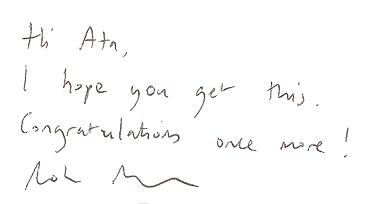 Hi Ata,
I hope you get this.
Congratulations once more!